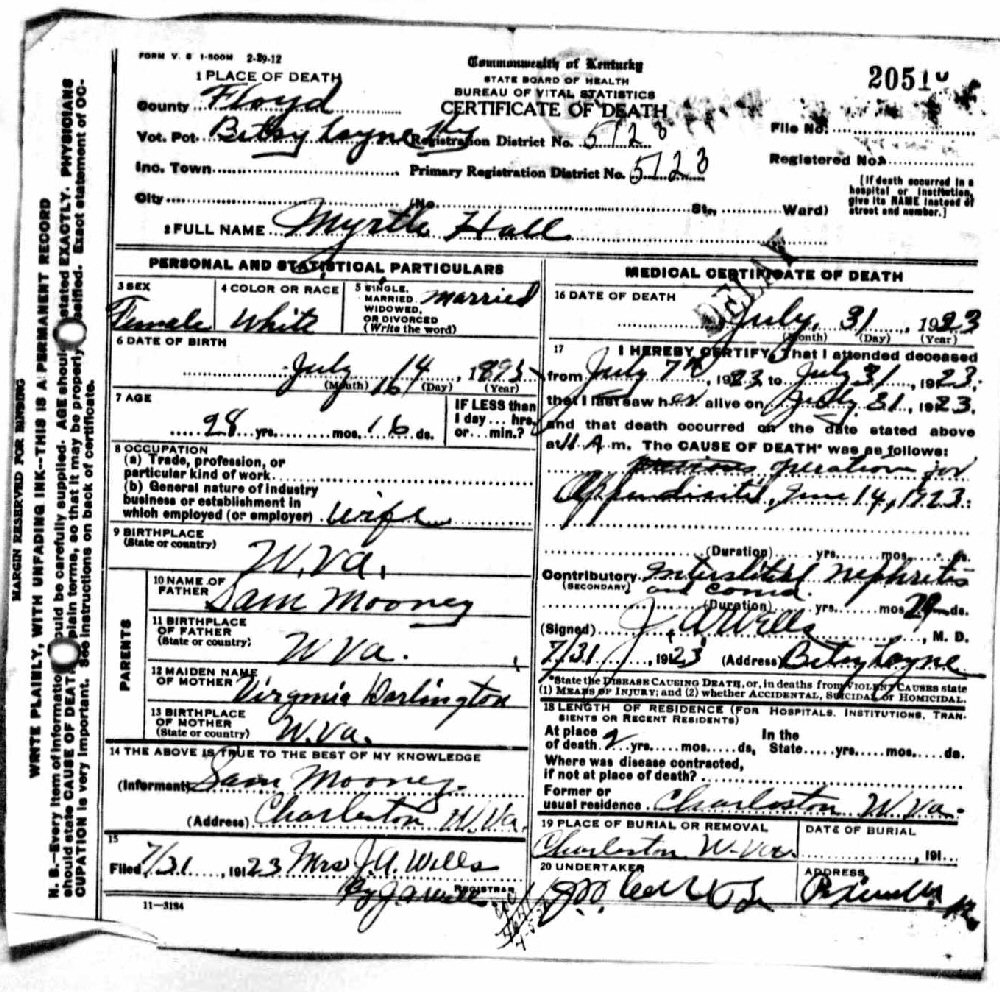 FORM V. S 1-500M 2-29-12
Commonwealth of Kentucky
STATE BOARD OF HEALTH
BUREAU OF VITAL STATISTICS
CERTIFICATE OF DEATH
2051
1 PLACE OF DEATH
County Floyd
Vot. Pct Betsy Layne Ky Registration District No. 5123
File No.
Inc. Town Primary Registration District No. 5123
Registered No.
City (No. St., Ward)
[If death occurred in a hospital or institution, give its NAME instead of street and number.]
2 FULL NAME Myrtle Hall
DELAY
PERSONAL AND STATISTICAL PARTICULARS
3 SEX
Female
4 COLOR OR RACE
White
5 SINGLE, MARRIED, WIDOWED, OR DIVORCED
(Write the word)
married
6 DATE OF BIRTH
July 14, 1895
(Month) 16 (Day) (Year)
7 AGE
28 yrs. mos. 16 ds.
IF LESS than
1 day ... hrs.
or ... min.?
8 OCCUPATION
(a) Trade, profession, or
particular kind of work
(b) General nature of industry
business or establishment in
which employed (or employer) wife
9 BIRTHPLACE
(State or country)
W.Va.
PARENTS
10 NAME OF FATHER
Sam Mooney
11 BIRTHPLACE OF FATHER
(State or country)
W Va.
12 MAIDEN NAME OF MOTHER
Virginia Darlington
13 BIRTHPLACE OF MOTHER
(State or country)
W.Va.
14 THE ABOVE IS TRUE TO THE BEST OF MY KNOWLEDGE
(Informant) Sam Mooney.
(Address) Charleston W.Va.
15
Filed 7/31, 1923 Mrs J.A. Wells
By J A Wells REGISTRAR
11-3184
MEDICAL CERTIFICATE OF DEATH
16 DATE OF DEATH
July, 31, 1923
(Month) (Day) (Year)
17 I HEREBY CERTIFY, That I attended deceased
from July 7th, 1923, to July 31, 1923.
that I last saw her alive on July 31, 1923.
and that death occurred on the date stated above
at 11 A. m. The CAUSE OF DEATH* was as follows:
previous operation for
Appendicitis, June 14, 1923.
(Duration) yrs. mos. ds.
Contributory Interstitial nephritis
(SECONDARY) and
(Duration) yrs. mos. 29 ds.
(Signed) J. A Wells M. D.
7/31, 1923 (Address) Betsy Layne
*State the DISEASE CAUSING DEATH, or, in deaths from VIOLENT CAUSES state
(1) MEANS OF INJURY; and (2) whether ACCIDENTAL, SUICIDAL or HOMICIDAL.
18 LENGTH OF RESIDENCE (FOR HOSPITALS, INSTITUTIONS, TRANSIENTS OR RECENT RESIDENTS)
At place of death 2 yrs. mos. ds. In the State yrs. mos. ds.
Where was disease contracted,
if not at place of death?
Former or
usual residence Charleston W Va.
19 PLACE OF BURIAL OR REMOVAL
Charleston W.Va.
DATE OF BURIAL
, 191
20 UNDERTAKER
ADDRESS
MARGIN RESERVED FOR BINDING
WRITE PLAINLY, WITH UNFADING INK--THIS IS A PERMANENT RECORD
N. B.--Every item of information should be carefully supplied. AGE should be stated EXACTLY. PHYSICIANS
should state CAUSE OF DEATH in plain terms, so that it may be properly classified. Exact statement of OC-
CUPATION is very important. See instructions on back of certificate.